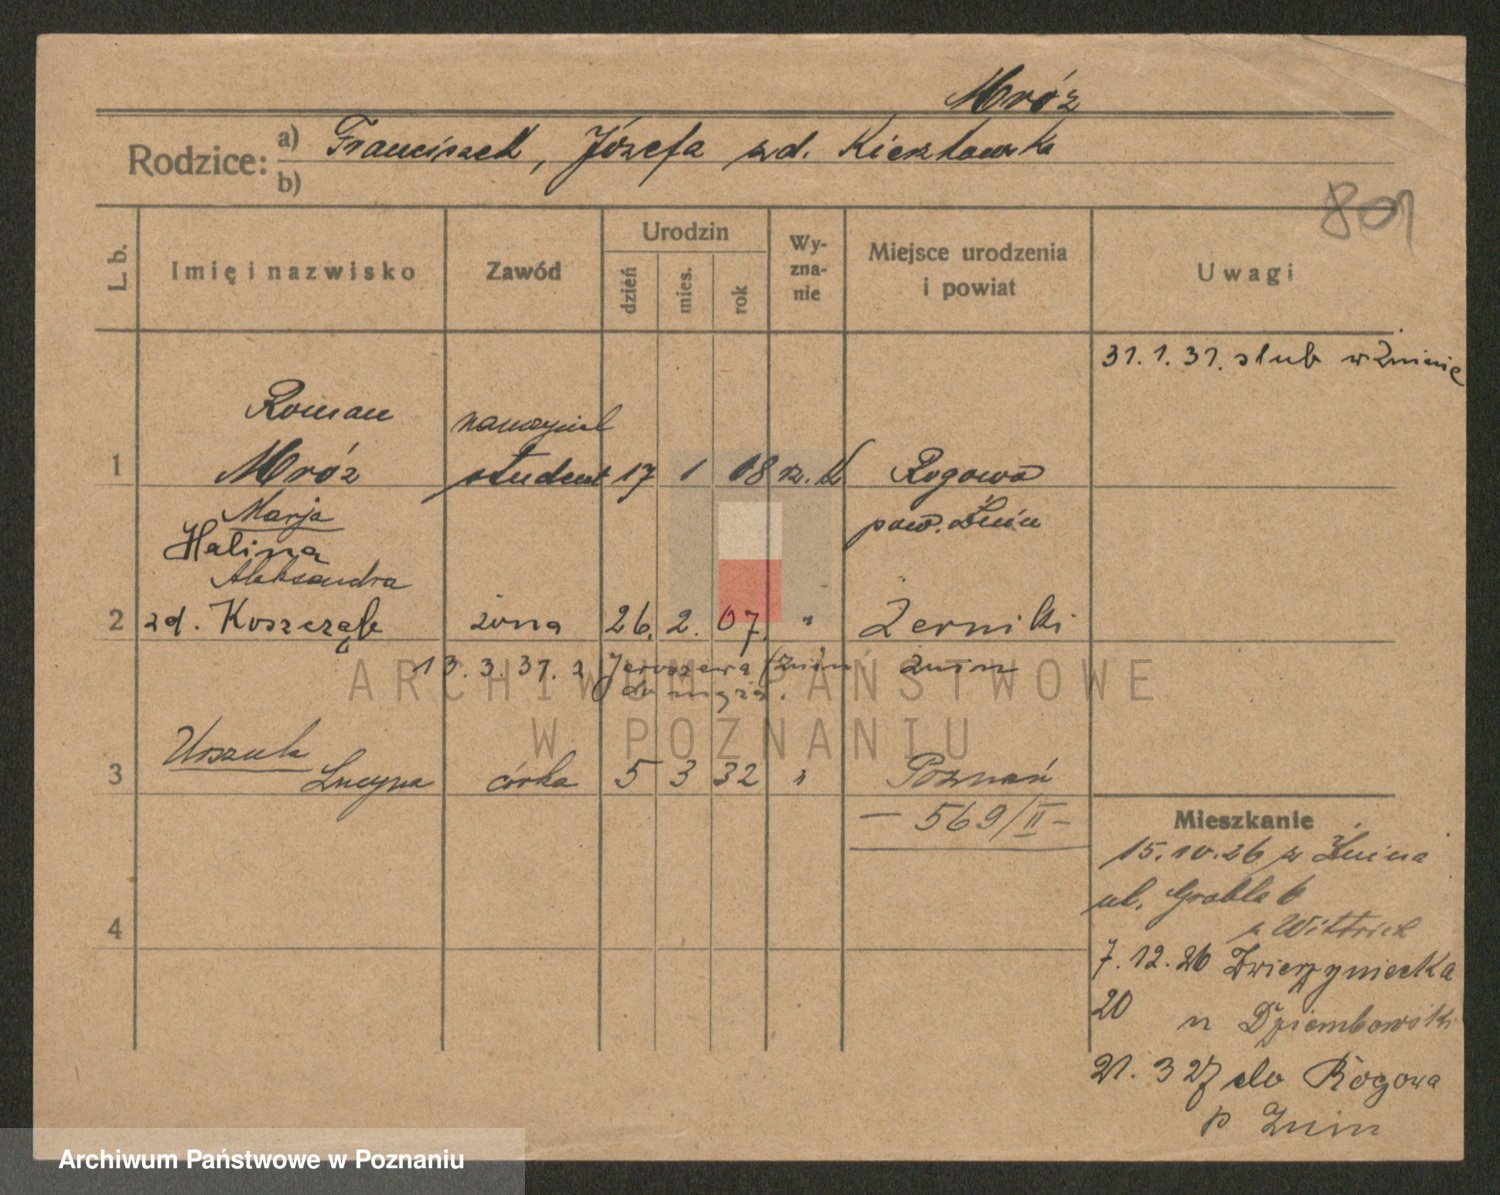 Mróz
Rodzice: a) Franciszek, Józefa zd. Kieszkowska
b)
801
L. b.
Imię i nazwisko
Zawód
Urodzin
dzień
mies.
rok
Wy-
zna-
nie
Miejsce urodzenia
i powiat
Uwagi
31.1.31. slub w Żninie
Roman nauczyciel
1 Mróz student 17 1 08 rz. k Rogowo
Marja pow. Żnin
Halina
Aleksandra
2 zd. Koszcząb żona 26. 2. 07. " Żerniki
13.3.31. z Jaroszewa (Żnin Żnin
do męża.
Urszula
3 Lucyna córka 5 3 32 " Poznań
– 569/II –
Mieszkanie
15.10.26 z Żnina
ul. Grobla 6
u Wittriek
4
7.12.26 Zwierzyniecka
20 u Dziembowski
21. 3 27 do Rogowa
p Znin
ARCHIWUM PAŃSTWOWE
W POZNANIU
Archiwum Państwowe w Poznaniu